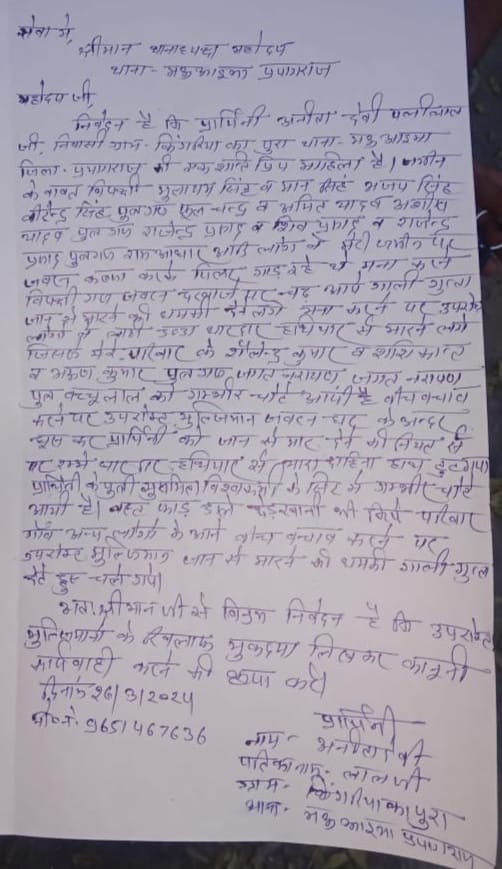 सेवा में,
श्रीमान थानाध्यक्ष महोदय
थाना - मऊआइमा प्रयागराज
महोदय जी,
निवेदन है कि प्रार्थिनी अनीता देवी पत्नी लाल
जी, निवासी ग्राम - किंगरिया का पुरा थाना - मऊआइमा
जिला - प्रयागराज की एक शांति प्रिय महिला है। जमीन
के बावत विपक्षी मुलायम सिंह व मान सिंह भजय सिंह
वीरेन्द्र सिंह पुत्रगण फूल चन्द्र व अमित यादव अशोक
यादव पुत्रगण राजेन्द्र प्रसाद व शिव प्रसाद व राजेन्द्र
प्रसाद पुत्रगण राम आधार आदि लोग मेरी जमीन पर
जबरन कब्जा करके पिलर गाड़ रहे थे मना करने
विपक्षी गण जबरन दरवाजे पर चढ़ आये गाली गुप्ता
जान से मारने की धमकी देने लगे मना करने पर उपरोक्त
लोगों ने लाठी डण्डा धारदार हथियार से मारने लगे
जिससे मेरे परिवार के शैलेन्द्र कुमार व शशि कान्त
व अरूण कुमार पुत्रगण जगत नारायण जगत नारायण
पुत्र बच्चूलाल को गम्भीर चोटे आयी है बीच बचाव
करने पर उपरोक्त मुल्जिमान जबरन घर के अन्दर
घुस कर प्रार्थिनी को जान से मार देने की नियत से
धारदार हथियार से मारा दाहिना हाथ टूट गया
प्रार्थिनी के पुत्री विश्वकर्मा के सिर में गम्भीर चोटे
आयी है। वस्त्र फाड़ डाले परिवार
गाँव अन्य लोगों के आने बीच बचाव करने पर
उपरोक्त मुल्जिमान जान से मारने की धमकी गाली-गुप्ता
देते हुए चले गये।
अतः श्रीमान जी से विनम्र निवेदन है कि उपरोक्त
मुल्जिमानों के खिलाफ मुकदमा लिखकर कानूनी
कार्यवाही करने की कृपा करें।
दिनांक 26/3/2024
मो०नं० 9651467636
प्रार्थिनी
नाम - अनीता देवी
पति का नाम - लाल जी
ग्राम - किंगरिया का पुरा
थाना - मऊआइमा प्रयागराज